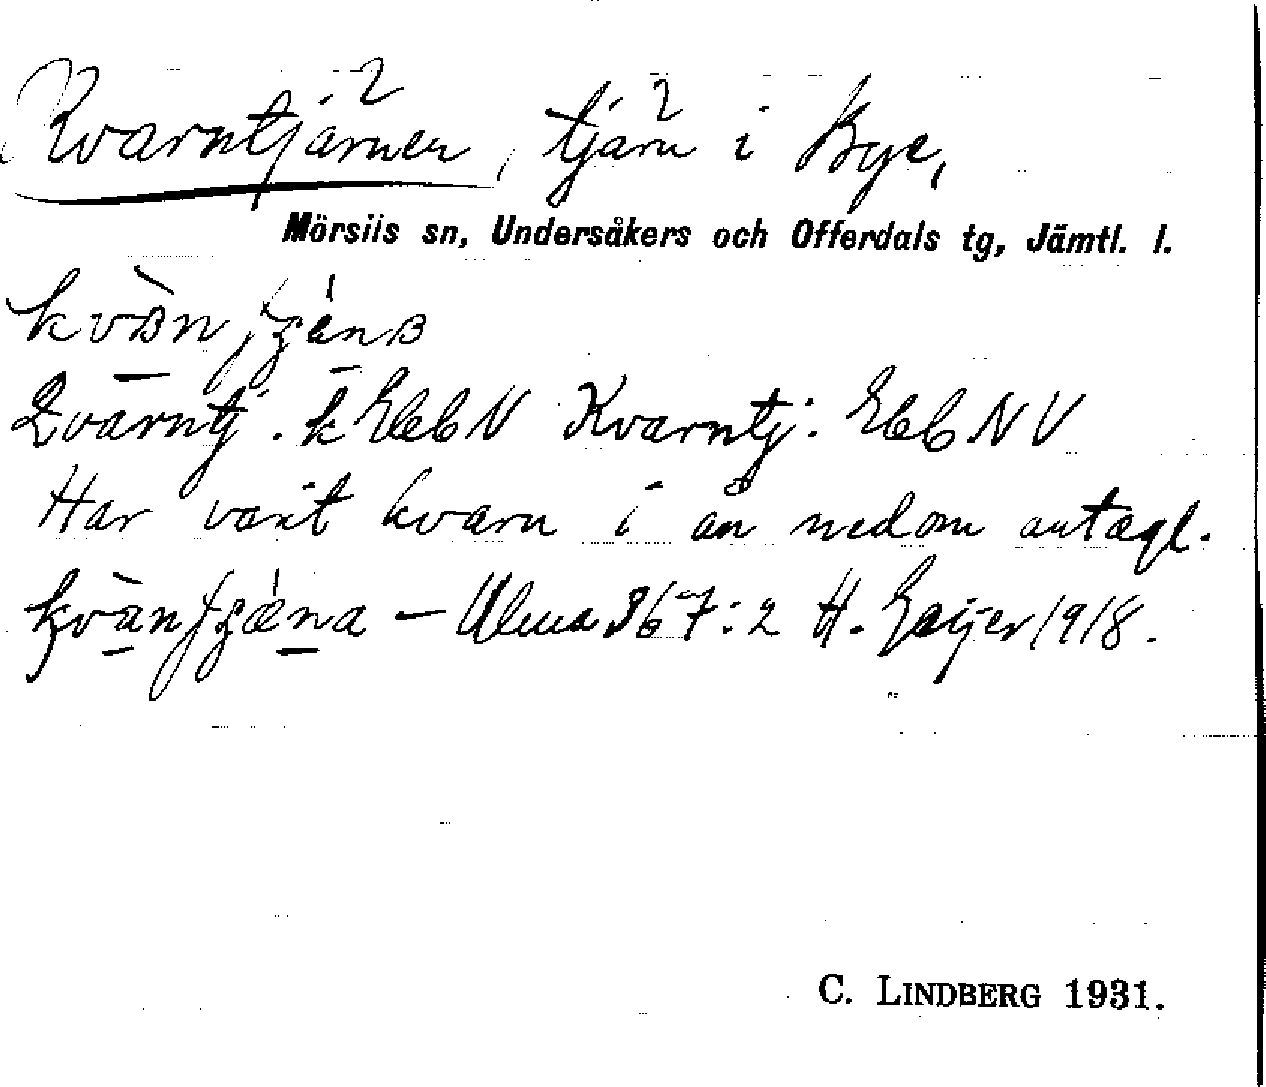 Kvarntjärnen, tjärn i Bye,
Mörsils sn, Undersåkers och Offerdals tg, Jämtl. l.
Qvarntj. k EbbN Kvarntj. EbbNV
Har varit kvarn i ån nedom antagl.
Ulma 367:2 H. Geijer 1918.
C. LINDBERG 1931.